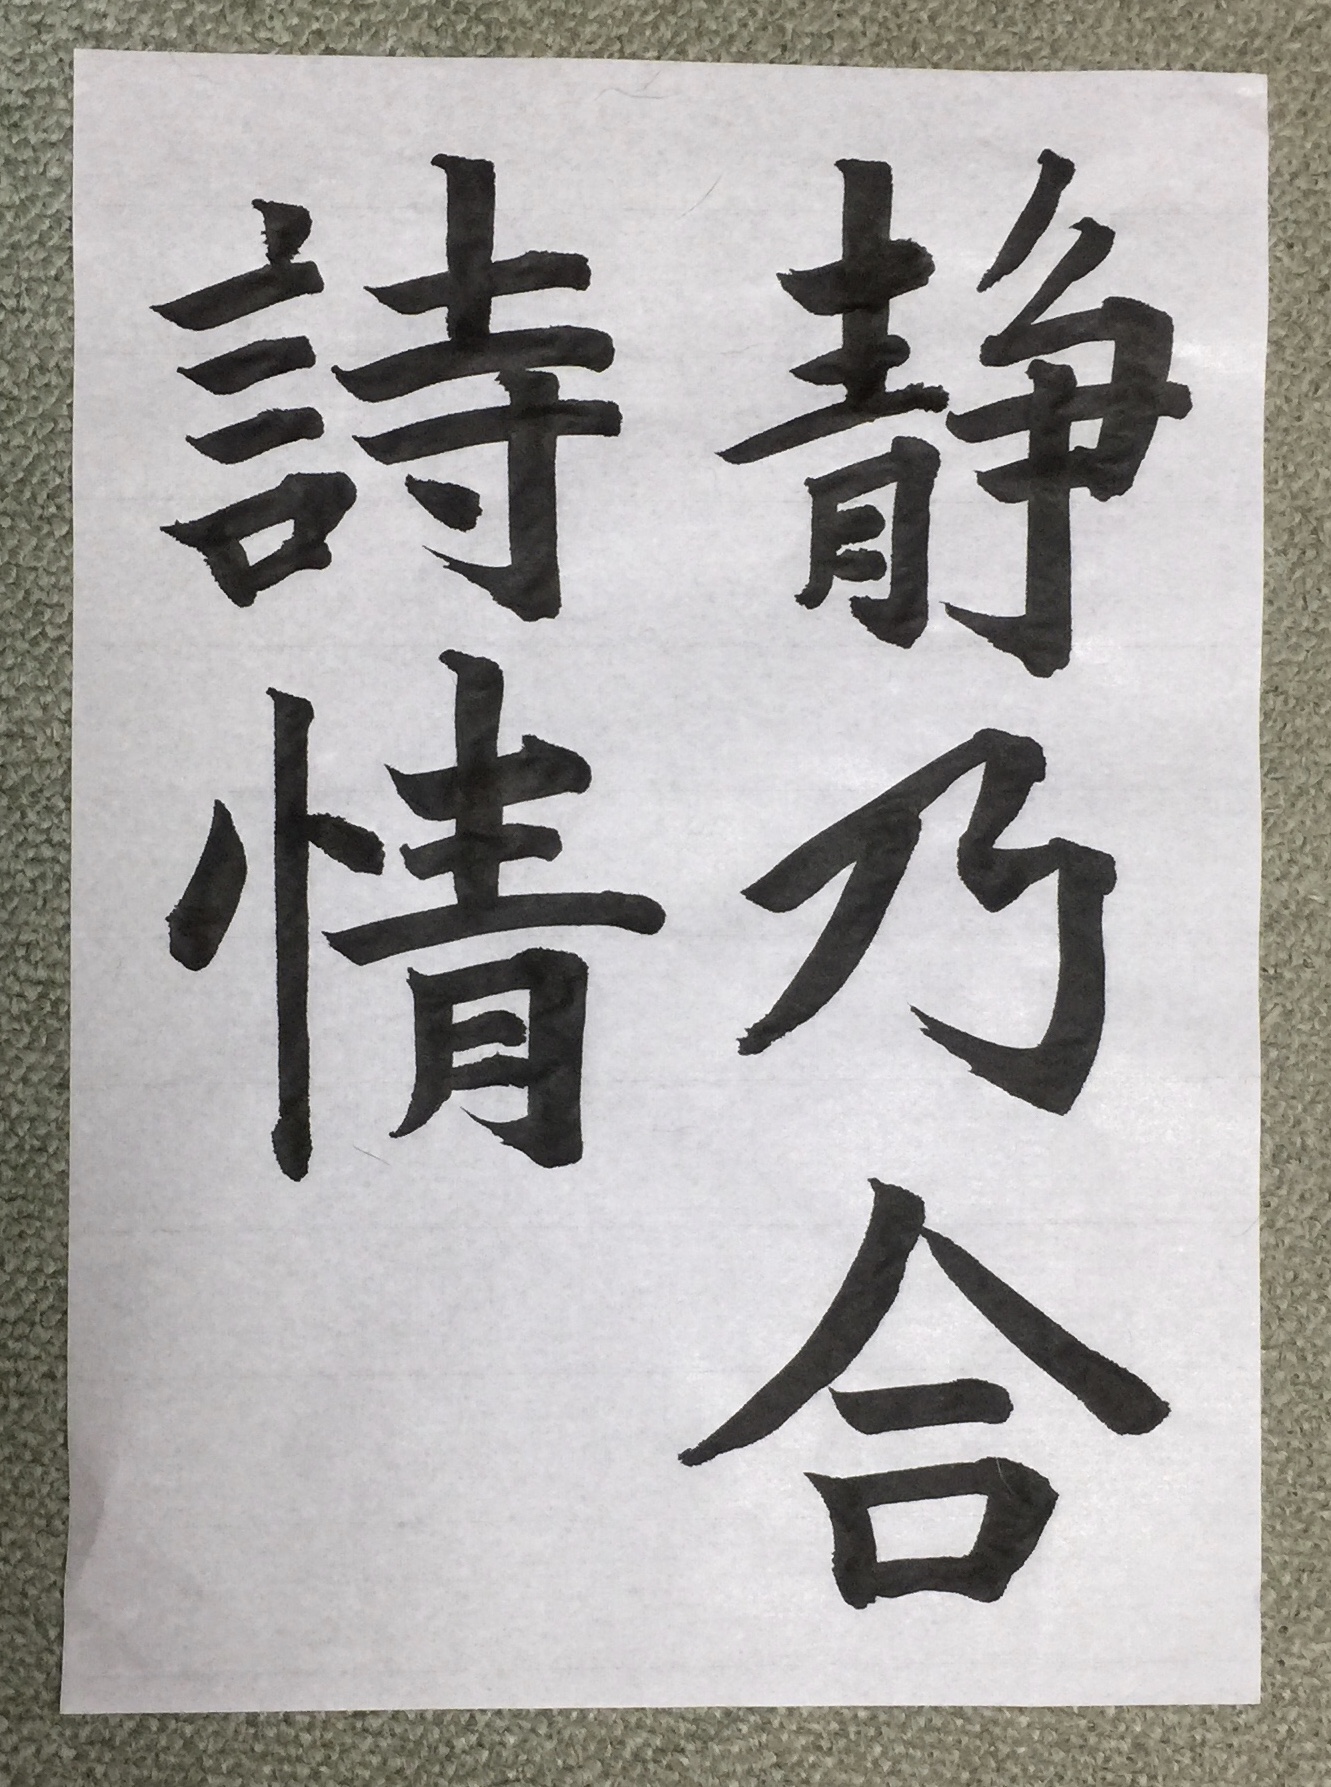 静乃合
詩情